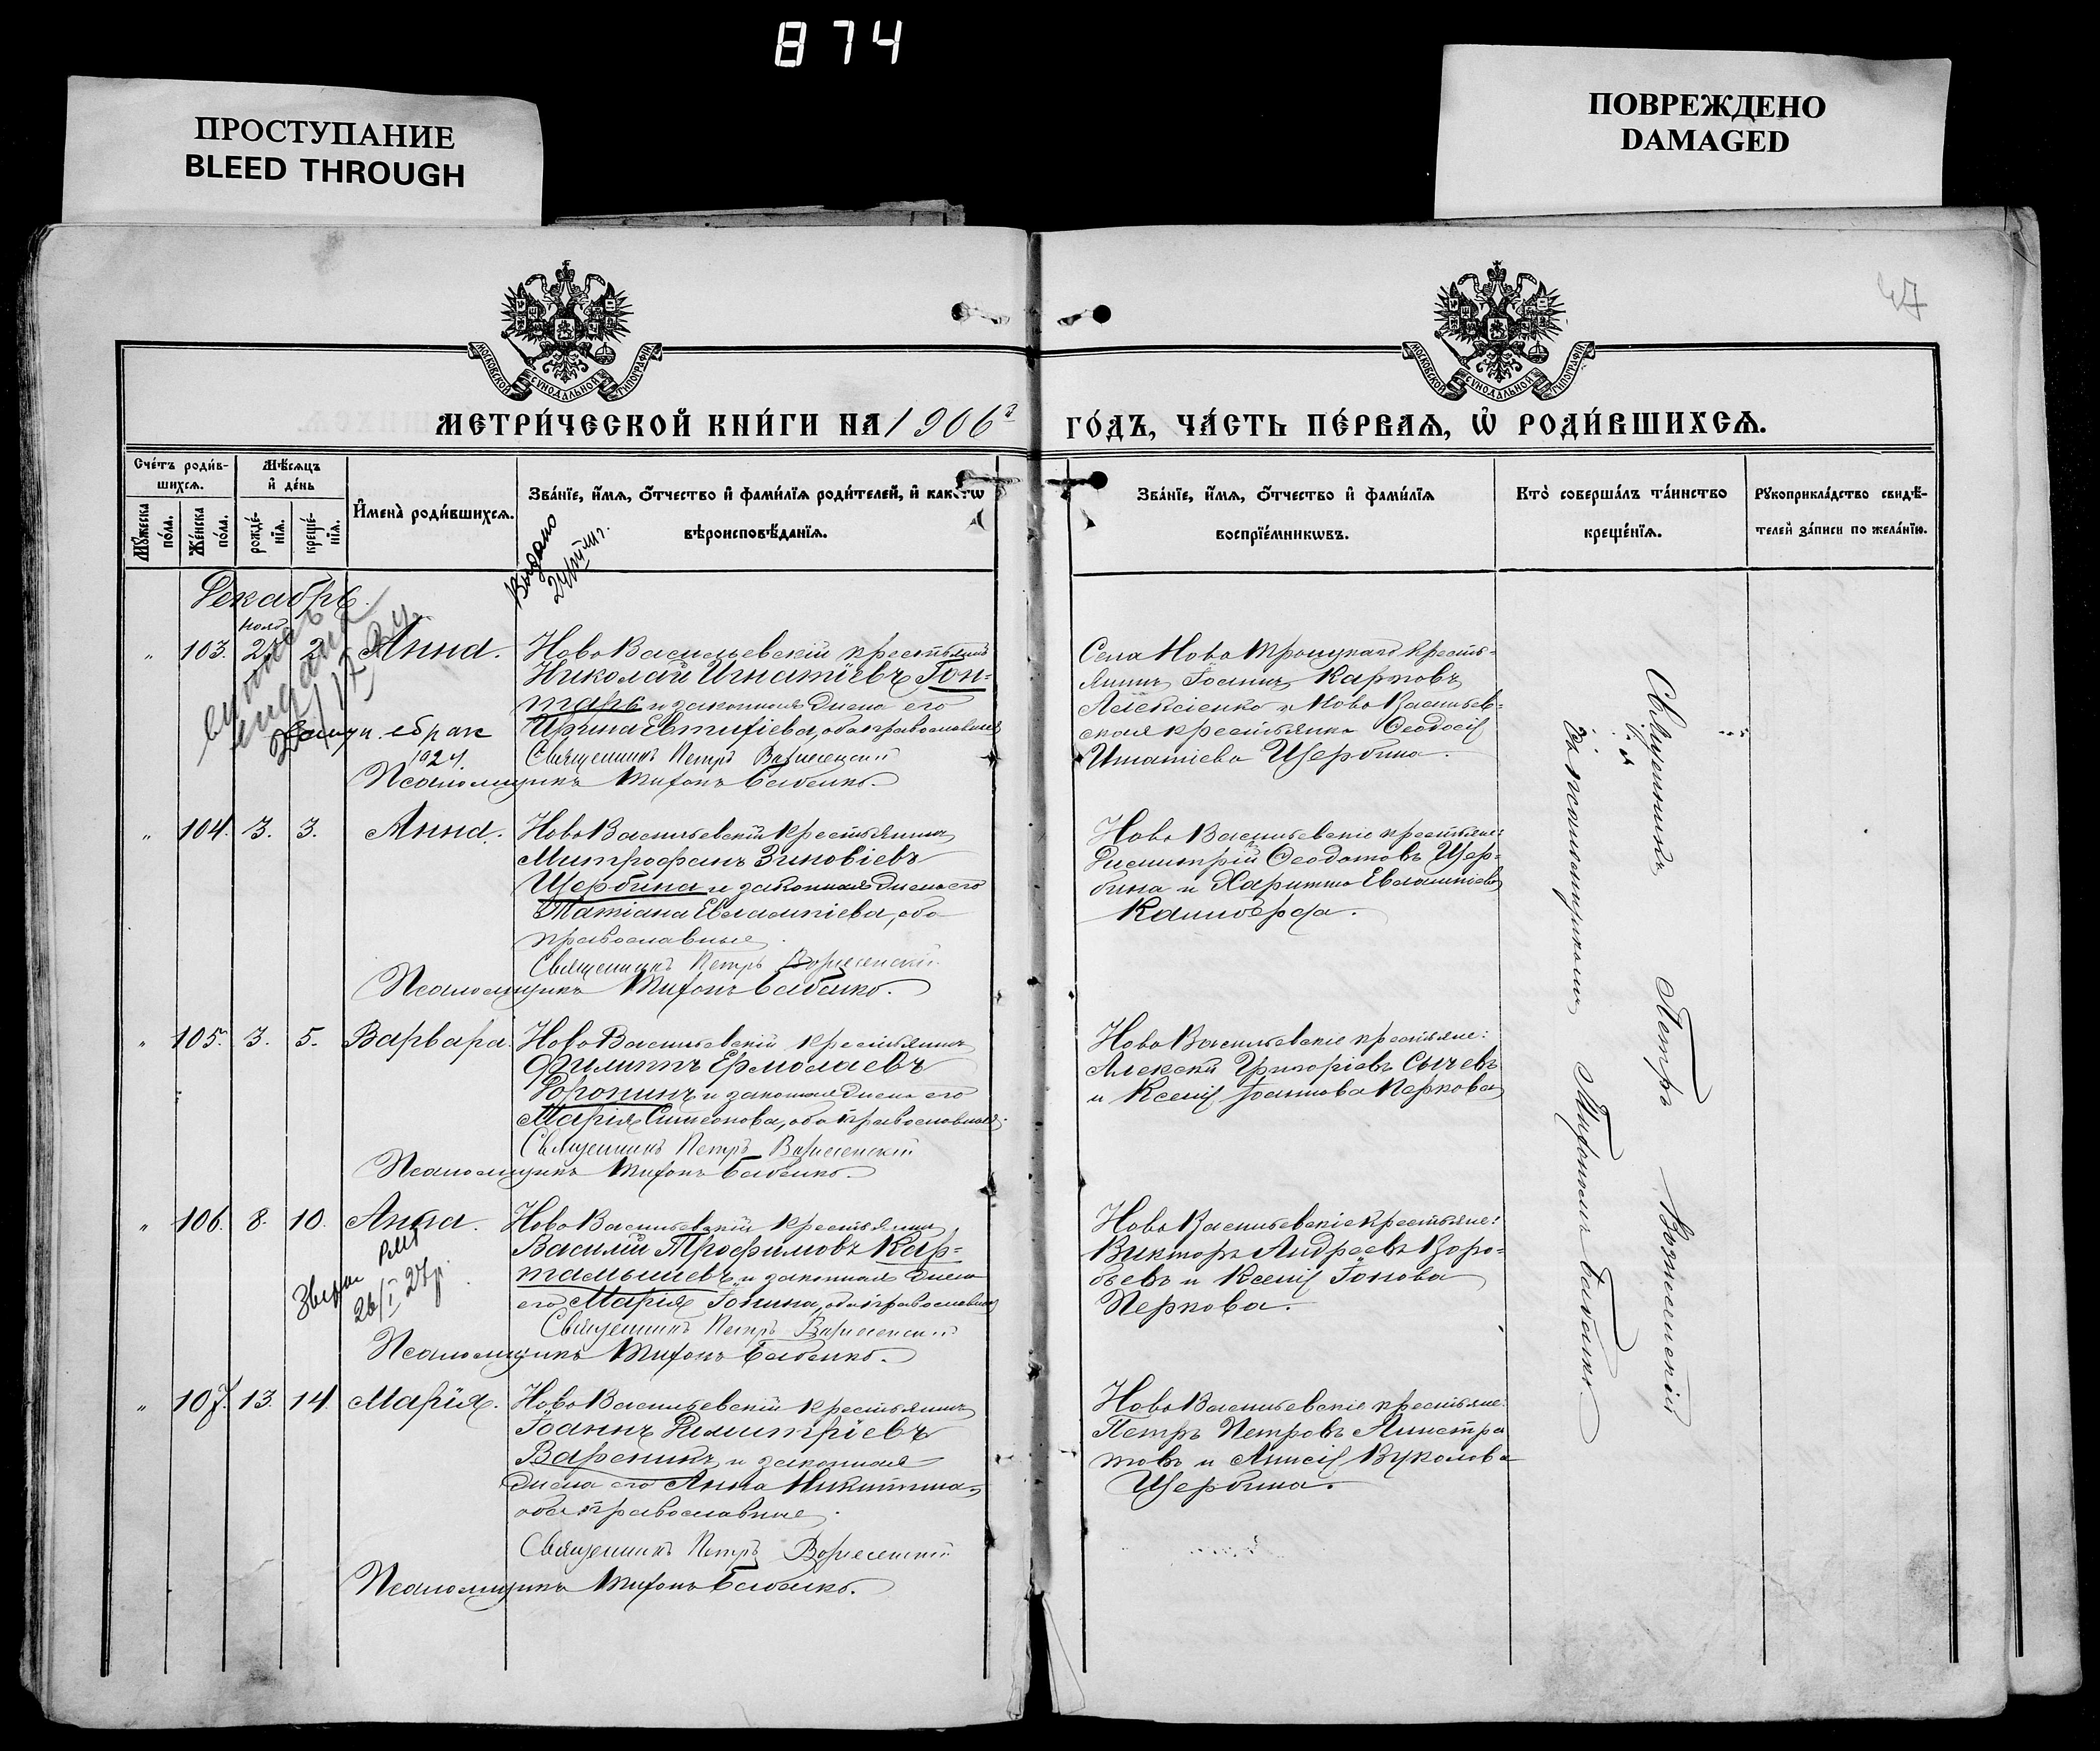 874
ПРОСТУПАНИЕ
BLEED THROUGH
ПОВРЕЖДЕНО
DAMAGED
47
МОСКОВСКОЙ СУНОДАЛЬНОЙ ТИПОГРАФІИ
МОСКОВСКОЙ СУНОДАЛЬНОЙ ТИПОГРАФІИ
МЕТРИ́ЧЕСКОЙ КНИ́ГИ НА 1906 г
ГО́ДЪ, ЧА́СТЬ ПЕ́РВАѦ, Ѡ҆ РОДИ́ВШИХСѦ.
Сче́тъ роди́в-
шихсѧ.
Мѣ́сѧцъ
и҆ де́нь
Мꙋ́жеска по́ла.
Же́нска по́ла.
рожде́-
нїѧ.
креще́-
нїѧ.
И҆мена̀ роди́вшихсѧ.
Зва́нїе, и҆́мѧ, ѻ҆́тчество и҆ фами́лїѧ роди́телей, и҆ како́гѡ
вѣроисповѣ́данїѧ.
Зва́нїе, и҆́мѧ, ѻ҆́тчество и҆ фами́лїѧ
воспрїе́мникѡвъ.
Кто̀ соверша́лъ та́инство
креще́нїѧ.
Рꙋкоприкла́дство свидѣ́-
телей за́писи по жела́нїю.
Выдано
Декабрь.
нояб.
" 103. 27 2. Анна.
НовоВасильевскій крестьянинъ
Николай Игнатіевъ Гон-
тарь и законная жена его
Ирина Евтихіева, оба православные
Священникъ Петръ Вознесенскій
Псаломщикъ Тихонъ Бабенко.
брак
1924.
Села Ново Троицкаго кресть-
янинъ Іоаннъ Карповъ
Алексіенко и Ново Васильев-
ская крестьянка Ѳеодосія
Игнатіева Щербина.
" 104. 3. 3. Анна.
НовоВасильевскій крестьянинъ
Митрофанъ Зиновіевъ
Щербина и законная жена его
Татіана Евлампіева, оба
православные.
Священникъ Петръ Вознесенскій
Псаломщикъ Тихонъ Бабенко.
Ново Васильевскіе крестьяне:
Димитрій Ѳеодотовъ Щер-
бина и Харитина Евлампіева
" 105. 3. 5. Варвара.
НовоВасильевскій крестьянинъ
Филиппъ Ермолаевъ
Доронинъ и законная жена его
Марія Симеонова, оба православные.
Священникъ Петръ Вознесенскій
Псаломщикъ Тихонъ Бабенко.
Ново Васильевскіе крестьяне:
Алексій Григоріевъ Сычевъ
и Ксенія Іоаннова Перкова
" 106. 8. 10. Анна.
НовоВасильевскій крестьянинъ
Василій Трофимовъ Кар-
тамышевъ и законная жена
его Марія Іонина, оба православные
Священникъ Петръ Вознесенскій
Псаломщикъ Тихонъ Бабенко.
26/I 27р.
Ново Васильевскіе крестьяне:
Викторъ Андреевъ Воро-
бьевъ и Ксенія Іонова
Перкова.
" 107. 13. 14. Марія.
НовоВасильевскій крестьянинъ
Іоаннъ Димитріевъ
Вареникъ и законная
жена его Анна Никитина,
оба православные.
Священникъ Петръ Вознесенскій
Псаломщикъ Тихонъ Бабенко.
Ново Васильевскіе крестьяне:
Петръ Петровъ
и Анисія Вуколова
Щербина.
Священникъ Петръ Вознесенскій
съ псаломщикомъ Тихономъ Бабенко